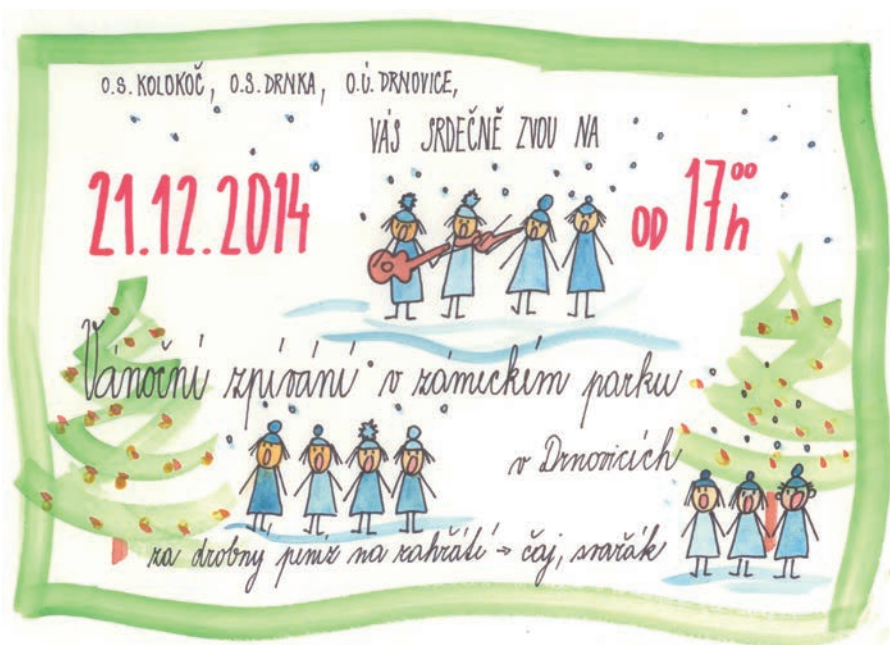 O.S. KOLOKOČ, O.S. DRNKA, O.Ú. DRNOVICE,
VÁS SRDEČNĚ ZVOU NA
21.12.2014 OD 17⁰⁰ h
Vánoční zpívání v zámeckém parku
v Drnovicích
za drobný peníz na zahřátí → čaj, svařák